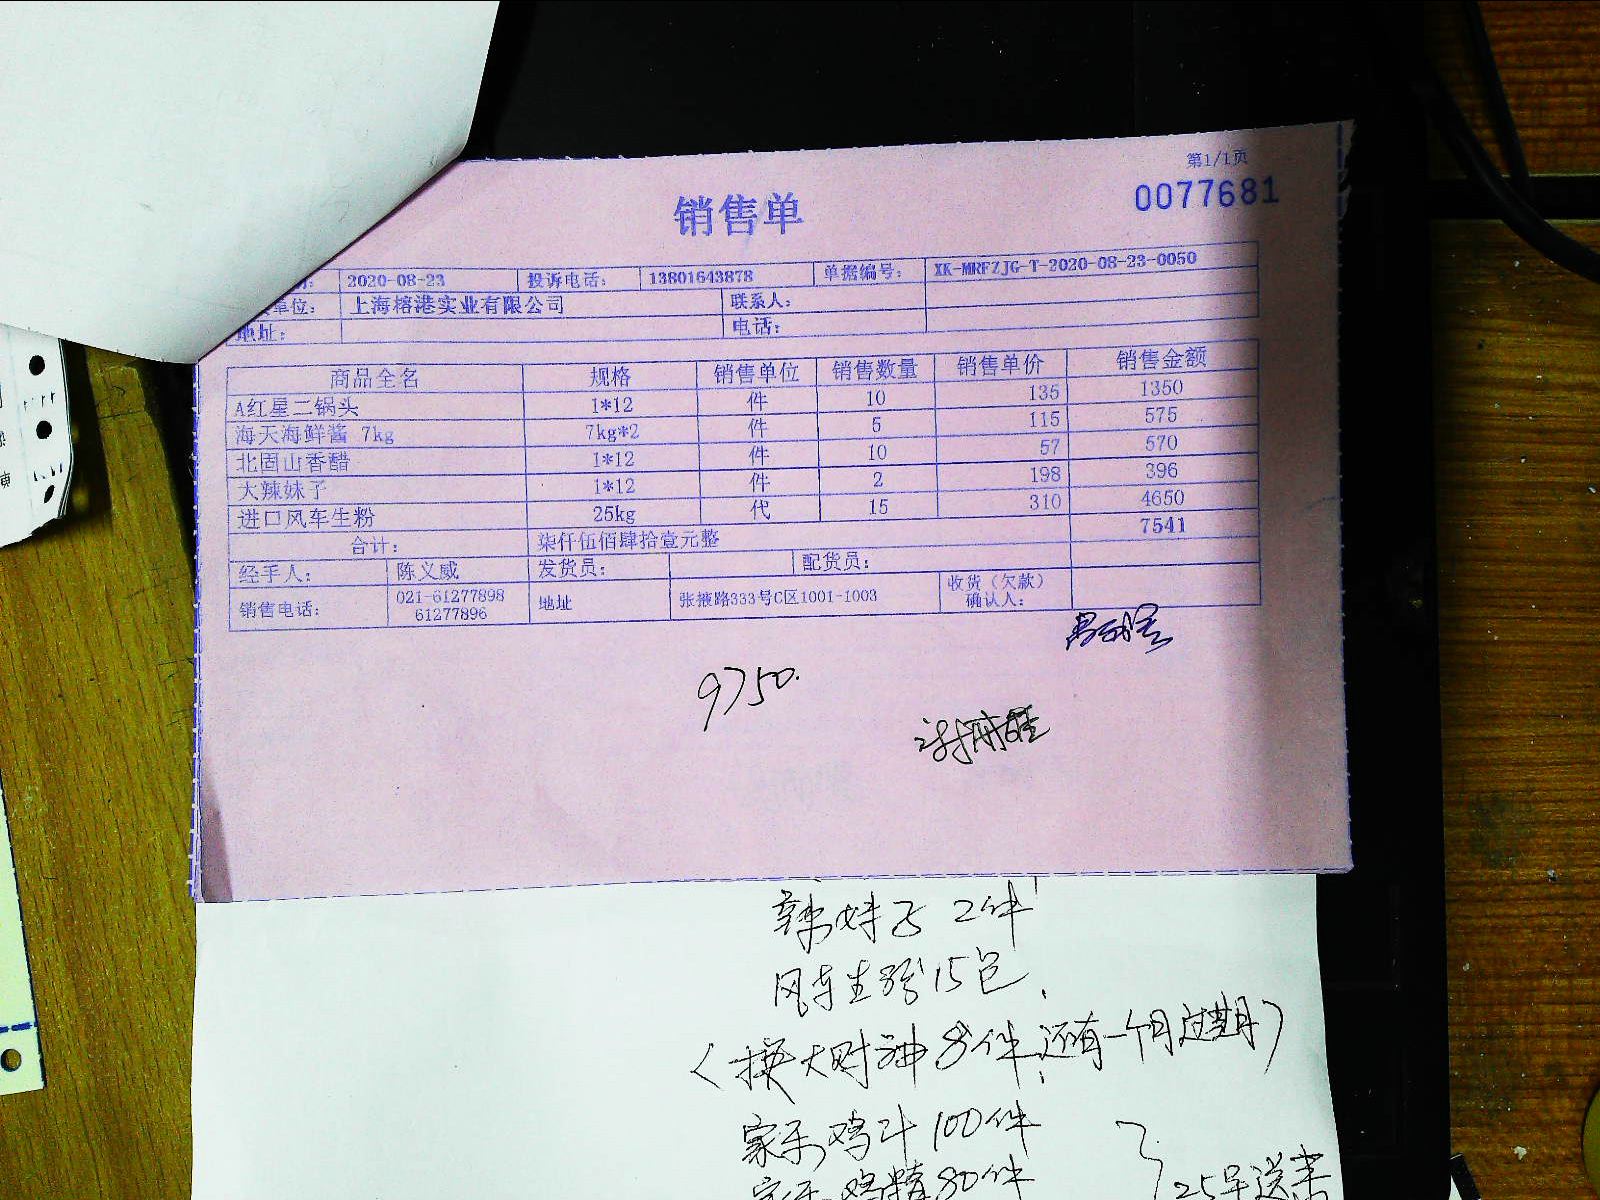 第1/1页
0077681
销售单
2020-08-23 投诉电话: 13801643878 单据编号: XK-MRFZJG-T-2020-08-23-0050
单位: 上海榕港实业有限公司 联系人:
地址: 电话:
商品全名 规格 销售单位 销售数量 销售单价 销售金额
A红星二锅头 1*12 件 10 135 1350
海天海鲜酱 7kg 7kg*2 件 5 115 575
北固山香醋 1*12 件 10 57 570
大辣妹子 1*12 件 2 198 396
进口风车生粉 25kg 代 15 310 4650
合计: 柒仟伍佰肆拾壹元整 7541
经手人: 陈义威 发货员: 配货员:
销售电话: 021-61277898 61277896 地址 张掖路333号C区1001-1003 收货(欠款)确认人:
9750.
辣妹子 2件
风车生粉15包
(换大财神8件,还有一个月过期)
家乐鸡汁100件
家乐鸡精80件
25早送来